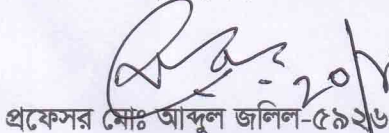 প্রফেসর মোঃ আব্দুল জলিল-৫৯২৬